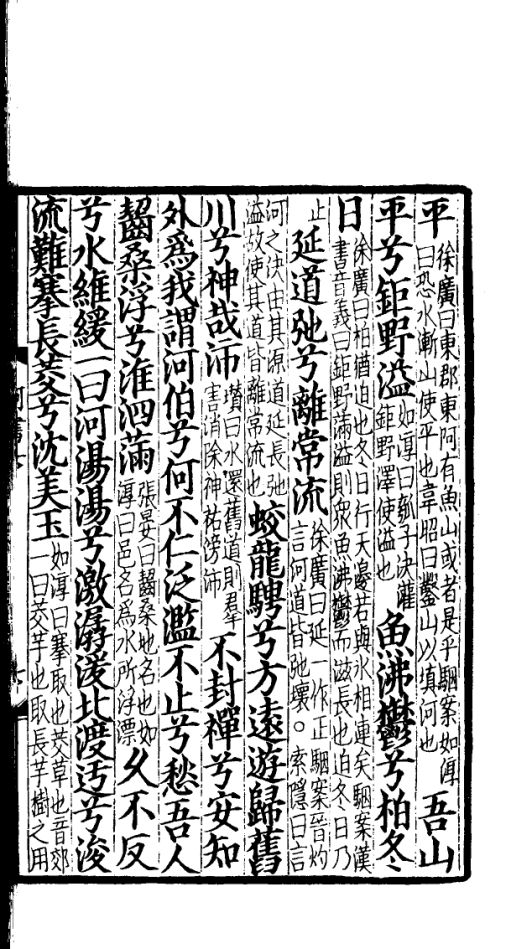 平徐廣曰東郡東阿有魚山或者是乎駰案如淳曰恐水漸山使平也韋昭曰鑿山以填河也吾山
平兮鉅野溢如淳曰瓠子決灌鉅野澤使溢也魚沸鬱兮柏冬
日徐廣曰柏猶迫也冬日行天邊若與水相連矣駰案漢書音義曰鉅野滿溢則衆魚沸鬱而滋長也迫冬日乃
止延道弛兮離常流徐廣曰延一作正駰案晉灼言河道皆弛壞。索隱曰言
河之決由其源道延長弛溢故使其道皆離常流也蛟龍騁兮方遠遊歸舊
川兮神哉沛瓚曰水還舊道則羣害消除神祐滂沛不封禪兮安知
外爲我謂河伯兮何不仁泛濫不止兮愁吾人
齧桑浮兮淮泗滿張晏曰齧桑地名也如淳曰邑名爲水所浮漂久不反
兮水維緩一曰河湯湯兮激潺湲北渡迂兮浚
流難搴長茭兮沈美玉如淳曰搴取也茭草也音郊一曰茭竿也取長竿樹之用